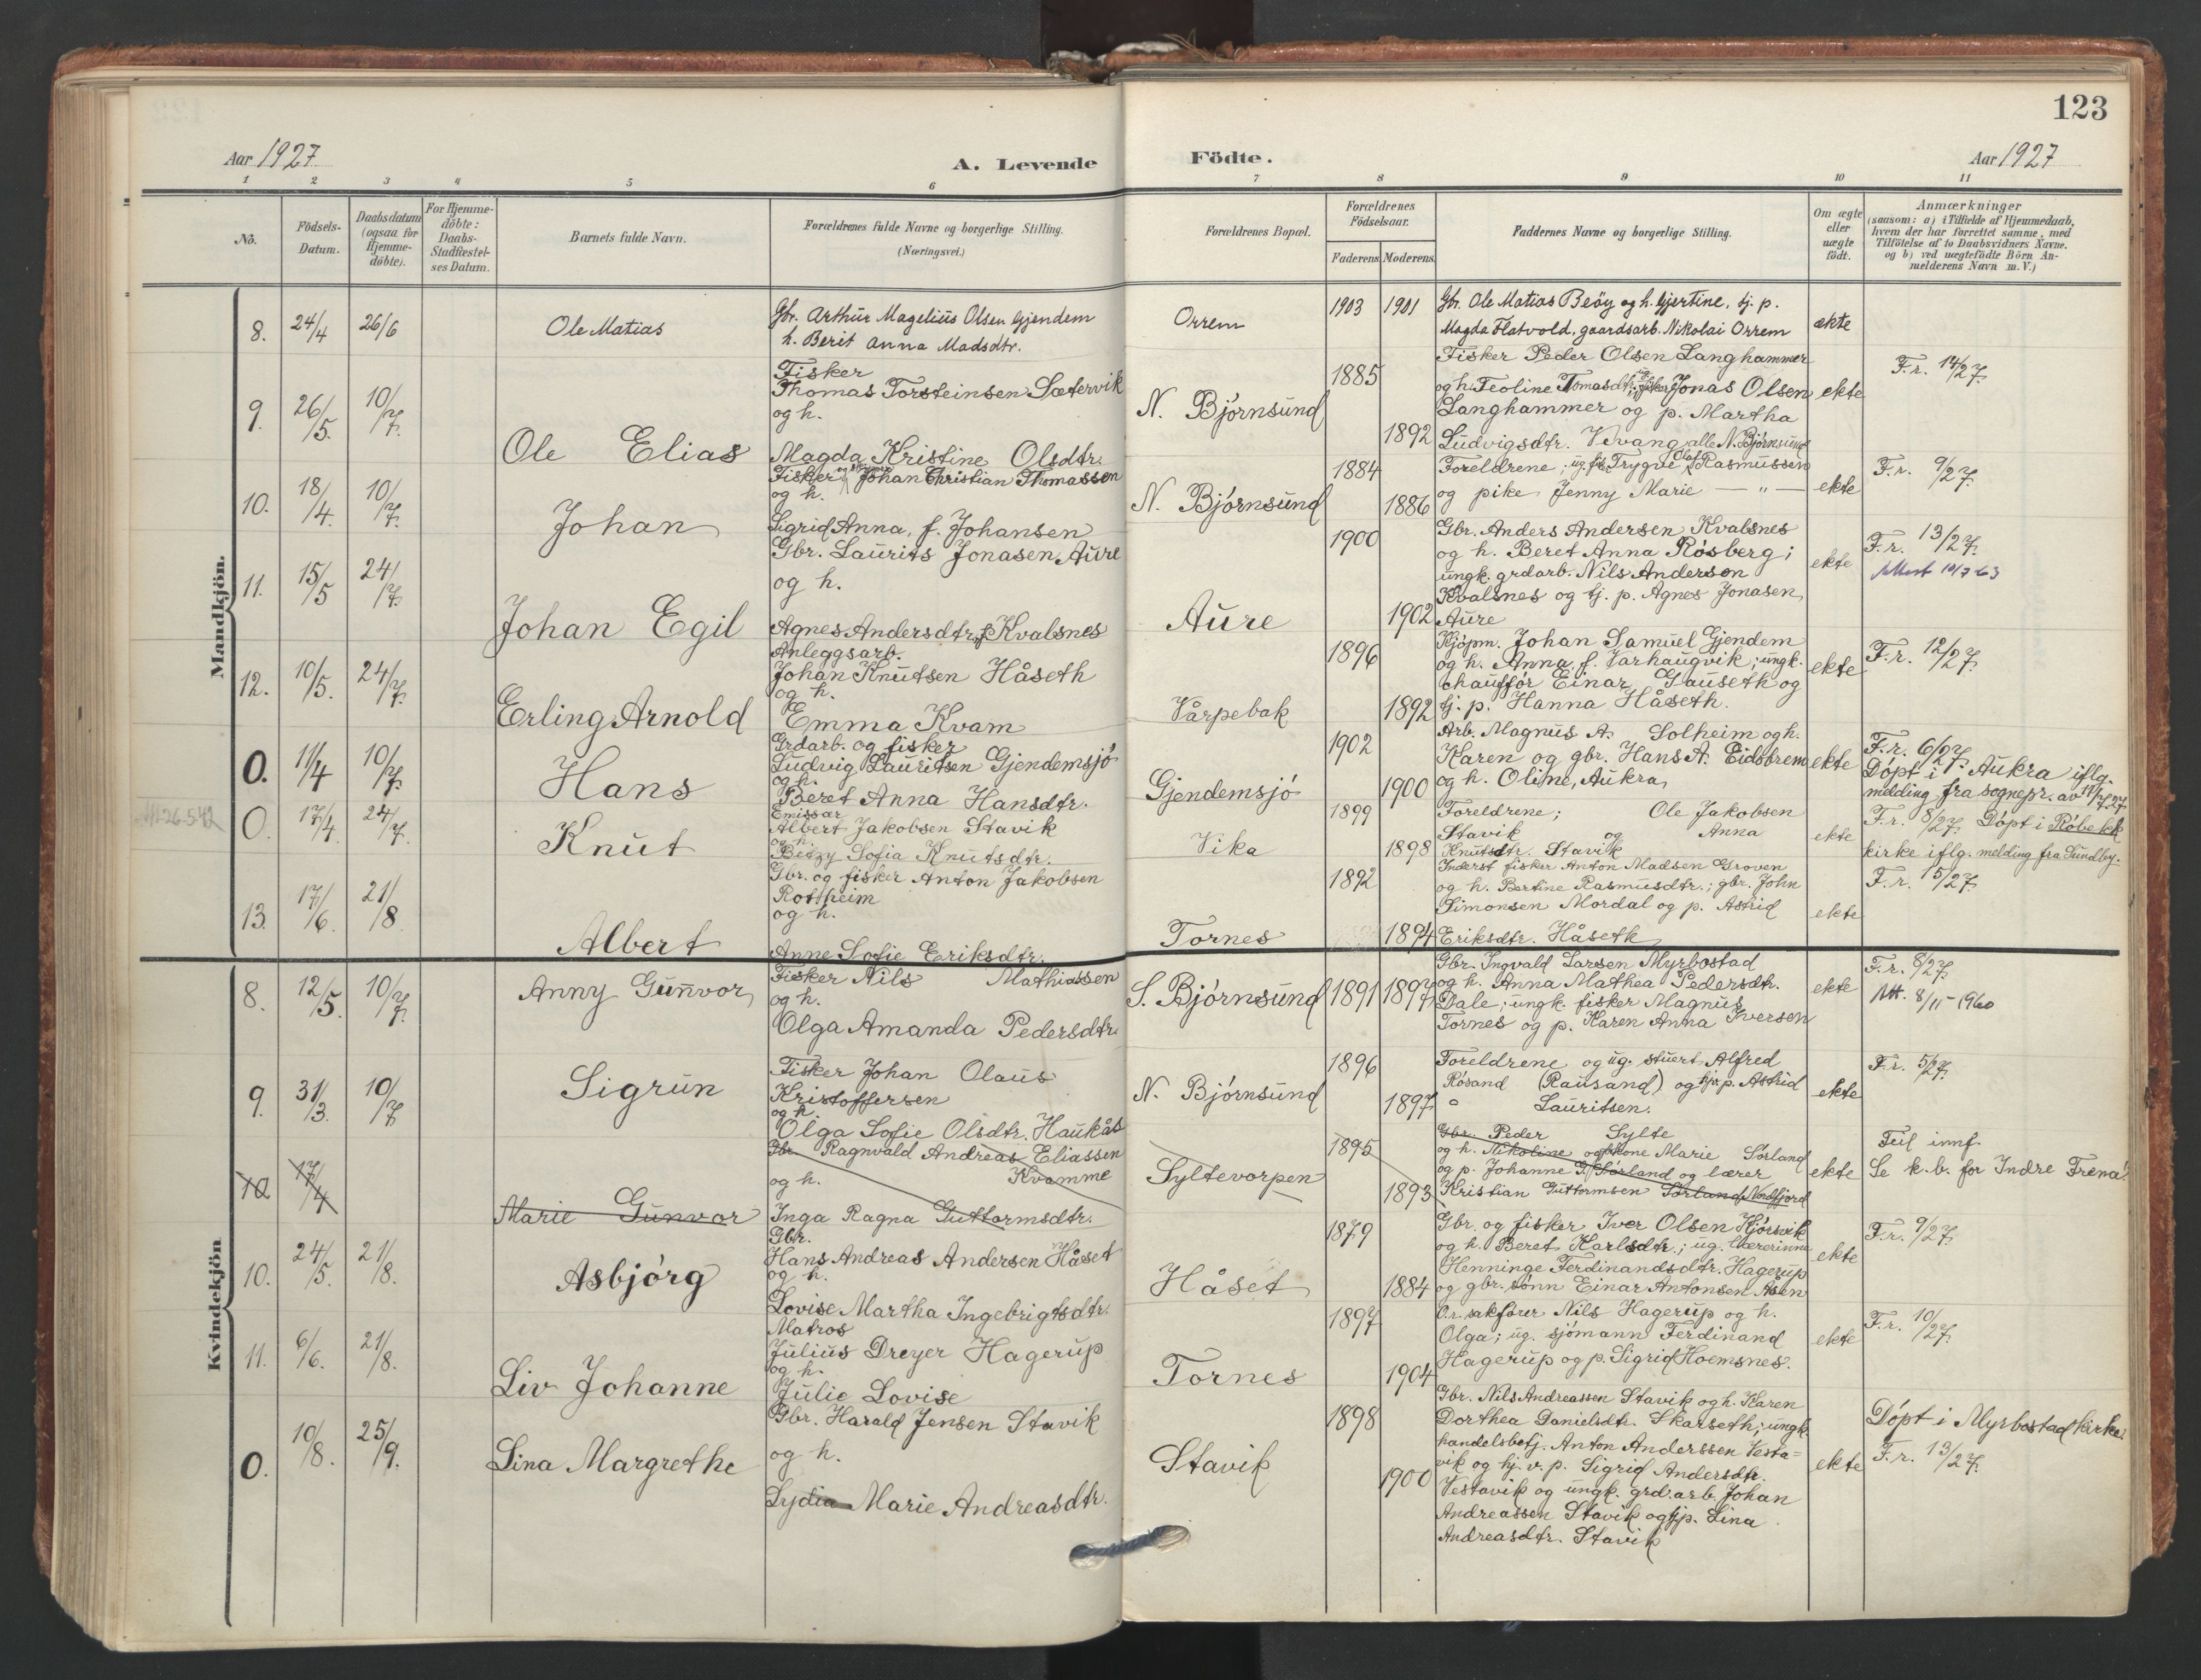 123
Aar 1927
A. Levende
Födte.
Aar 1927
1 2 3 4 5 6 7 8 9 10 11
No.
Födsels-
Datum.
Daabsdatum
(ogsaa for
Hjemme-
döbte).
For Hjemme-
döbte:
Daabs-
Stadfæstel-
ses Datum.
Barnets fulde Navn.
Forældrenes fulde Navne og borgerlige Stilling.
(Næringsvei.)
Forældrenes Bopæl.
Forældrenes
Födselsaar.
Faderens. Moderens.
Faddernes Navne og borgerlige Stilling.
Om ægte
eller
uægte
födt.
Anmærkninger
(saasom: a) i Tilfælde af Hjemmedaab,
hvem der har forrettet samme, med
Tilföielse af to Daabsvidners Navne.
og b) ved uægtefödte Börn An-
melderens Navn m.V.)
Mandkjön.
8. 24/4 26/6 Ole Matias
Gbr. Arthur Magelius Olsen Gjendem
h. Berit Anna Madsdtr.
Orrem 1903 1901
Gbr. Ole Matias Beöy og h. Gjertine, tj. p.
Magda Flatvold, gaardsarb. Nikolai Orrem
ekte
9. 26/5. 10/7. Ole Elias
Fisker
Thomas Torsteinsen Sætervik
og h.
Magda Kristine Olsdtr.
N. Bjórnsund 1885 1892
Fisker Peder Olsen Langhammer
og h. Teoline Tomasdtr.; fisker Jonas Olsen
Langhammer og p. Martha
Ludvigsdtr. Vevang, alle N. Bjórnsund
ekte
F. r. 14/27.
10. 18/4. 10/7. Johan
Fisker Johan Christian Thomassen
og h.
Sigrid Anna, f. Johansen
N. Bjórnsund 1884 1886
Foreldrene; ug. fis. Trygve Olaf Rasmussen
og pike Jenny Marie — " —
ekte
F. r. 9/27.
11. 15/5 24/7. Johan Egil
Gbr. Laurits Jonasen Aure
og h.
Agnes Andersdtr., f. Kvalsnes
Aure 1900 1902
Gbr. Anders Andersen Kvalsnes
og h. Beret Anna Rósberg;
ungk. grdarb. Nils Andersen
Kvalsnes og tj. p. Agnes Jonasen,
Aure
ekte
F. r. 13/27.
Attest 10/7-63
12. 10/5. 24/7. Erling Arnold
Anleggsarb.
Johan Knutsen Håseth
og h.
Emma Kvam
Vårpebak 1896 1892
Kjópm. Johan Samuel Gjendem
og h. Anna, f. Varhaugvik; ungk.
chauffór Einar Gauseth og
tj. p. Hanna Håseth.
ekte
F. r. 12/27.
0. 11/4 10/7. Hans
Grdarb. og fisker
Ludvig Lauritsen Gjendemsjó
og h.
Beret Anna Hansdtr.
Gjendemsjó 1902 1900
Arb. Magnus A. Solheim og h.
Karen og gbr. Hans A. Eidsbrem
og h. Oline, Aukra,
ekte
F. r. 6/27.
Dópt i Aukra iflg.
melding fra sognepr. av 11/7.27
0. 17/4. 24/7. Knut
Emissær
Albert Jakobsen Stavik
og h.
Betzy Sofia Knutsdtr.
Vika 1899 1898
Foreldrene; Ole Jakobsen
Stavik og Anna
Knutsdtr. Stavik
ekte
F. r. 8/27. Dópt i Róbekk
kirke iflg. melding fra Sundby.
13. 17/6. 21/8. Albert
Gbr. og fisker Anton Jakobsen
Rottheim
og h.
Anne Sofie Eriksdtr.
Tornes 1892 1894
Inderst fisker Anton Madsen Groven
og h. Bertine Rasmusdtr.; gbr. John
Simonsen Mordal og p. Astrid
Eriksdtr. Håseth
ekte
F. r. 15/27.
Kvindekjön
8. 12/5. 10/7. Anny Gunvor
Fisker Nils Mathiassen
og h.
Olga Amanda Pedersdtr.
S. Bjórnsund 1891 1897
Gbr. Ingvald Larsen Myrbostad
og h. Anna Mathea Pedersdtr.
Dale; ungk. fisker Magnus
Tornes og p. Karen Anna Iversen
ekte
F. r. 8/27.
Att. 8/11-1960
9. 31/3. 10/7 Sigrun
Fisker Johan Olaus
Kristoffersen
og h.
Olga Sofie Olsdtr. Haukås
N. Bjórnsund 1896 1897
Foreldrene og ug. stuert Alfred
Rósand (Rausand) og tj. p. Astrid
" Lauritsen.
ekte
F. r. 5/27.
10 17/4 Marie Gunvor
Gbr. Ragnvald Andreas Eliassen
Kvamme
og h.
Inga Ragna Guttormsdtr.
Syltevorpen 1895 1893
Gbr. Peder Sylte
og h. Nikoline og kone Marie Sörland
og p. Johanne G. Sörland og lærer
Kristian Guttormsen Sörland, Nordfjord
ekte
Feil innf.
Se k.b. for Indre Frena.
10. 24/5. 21/8. Asbjórg
Gbr.
Hans Andreas Andersen Håset
og h.
Lovise Martha Ingebrigtsdtr.
Håset 1879 1884
Gbr. og fisker Iver Olsen Hjórsvik
og h. Beret Karlsdtr.; ug. lærerinne
Henninge Ferdinandsdtr. Hagerup
og gbr. sónn Einar Antonsen Åsen
ekte
F. r. 9/27.
11. 6/6. 21/8. Liv Johanne
Matros
Julius Dreyer Hagerup
og h.
Julie Lovise
Tornes 1897 1904
O.r. sakfórer Nils Hagerup og h.
Olga; ug. sjómann Ferdinand
Hagerup og p. Sigrid Hoemsnes.
ekte
F. r. 10/27.
0. 10/8. 25/9. Lina Margrethe
Gbr. Harald Jensen Stavik
og h.
Lydia Marie Andreasdtr.
Stavik 1898 1900
Gbr. Nils Andreassen Stavik og h. Karen
Dorthea Danielsdtr. Skarseth; ungk.
handelsbetj. Anton Anderssen Vesta=
vik og hj. v. p. Sigrid Andersdtr.
Vestavik og ungk. grd.arb. Johan
Andreassen Stavik og tj.p. Lina
Andreasdtr. Stavik
ekte
Dópt i Myrbostad kirke.
F. r. 13/27.